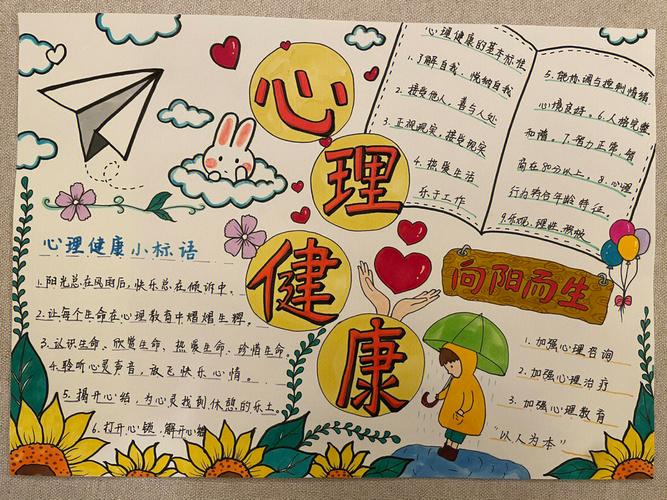 心理健康
心理健康的基本标准
1.了解自我、悦纳自我
2.接受他人，善与人处
3.正视现实，接受现实
4.热爱生活
乐于工作
5.能协调与控制情绪
心境良好。6.人格完整
和谐。7.智力正常，智
商在80分以上。8.心理
行为符合年龄特征。
9.乐观、理性
向阳而生
心理健康小标语
1.阳光总在风雨后，快乐总在倾诉中。
2.让每个生命在心理教育中熠熠生辉。
3.认识生命、欣赏生命、热爱生命、珍惜生命。
4.聆听心灵声音，放飞快乐心情。
5.揭开心结，为心灵找到休憩的乐土。
6.打开心锁，解开心
1.加强心理咨询
2.加强心理治疗
3.加强心理教育
"以人为本"